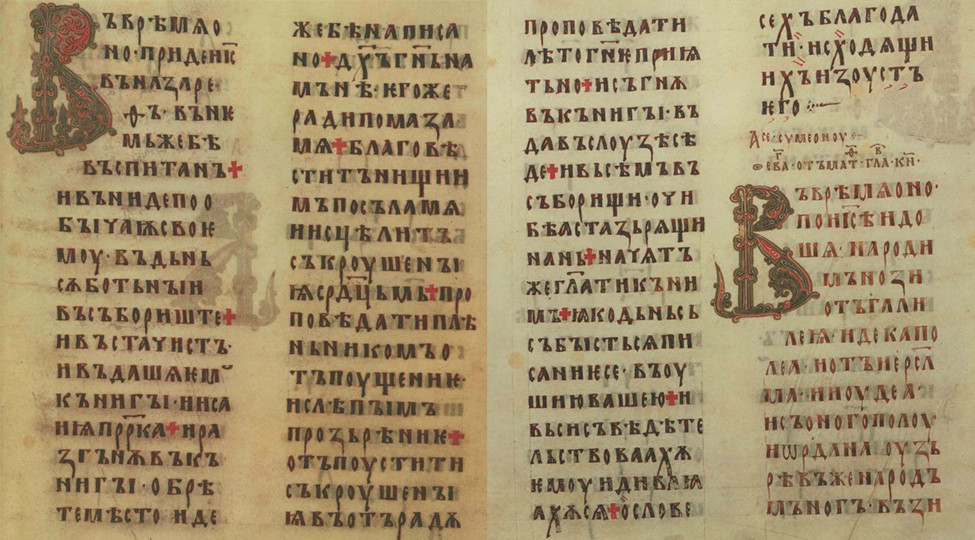 Въврѣмѧо
но·придеиіс҃
въназаре
ѳъ·вънѥ
мьжебѣ
въспитанъ+
ивънидепоо
бꙑчаюсвоѥ
моу·въдьнь
сѫботьнꙑи
въсъбориште+
ивъстачистъ·
ивъдашѧѥмꙋ
кънигꙑ·иса
иꙗпрр҃ка+ира
згънѫвъкъ
нигꙑ·обрѣ
темѣстоиде
жебѣнаписа
но+дх҃ъгн҃ьна
мънѣ·ѥгоже
радипомаза
мѧ+благовѣ
ститъништии
мъпосъламѧ
иисцѣлитъ
съкроушенꙑ
ꙗсрд҃цьмь+про
повѣдатиплѣ
ньникомъо
тъпоущениѥ·
ислѣпꙑмъ
прозьрѣниѥ+
отъпоустити
съкроушенꙑ
ꙗвъотърадѫ
проповѣдати
лѣтогн҃ѥприѩ
тьно+исъгнѫ
въкънигꙑ·въ
давъслоузѣсѣ
де+ивьсѣмъвъ
съборищи·очи
бѣастазьрѧщи
нань+начѧтъ
жегл҃атикъни
мъ+ꙗкодьньсь
събꙑстьсѧпи
саниѥсе·въоу
шиювашею+и
вьсисъвѣдѣте
льствоваахѫ
ѥмоуидивлꙗ
ахѫсѧ+ословє
сехъблагода
ти·исходѧщи
ихъизоустъ
ѥго
въврѣмѧоно·
поис҃ѣидо
шѧ·народи
мънози
отъгали
леѩ·идекапо
лѧ·иотъиерс҃л
ма·ииоудеѧ·
исъоногополоу·
иꙍрдана·оузь
рѣвъженародъ
мъногъ·възи